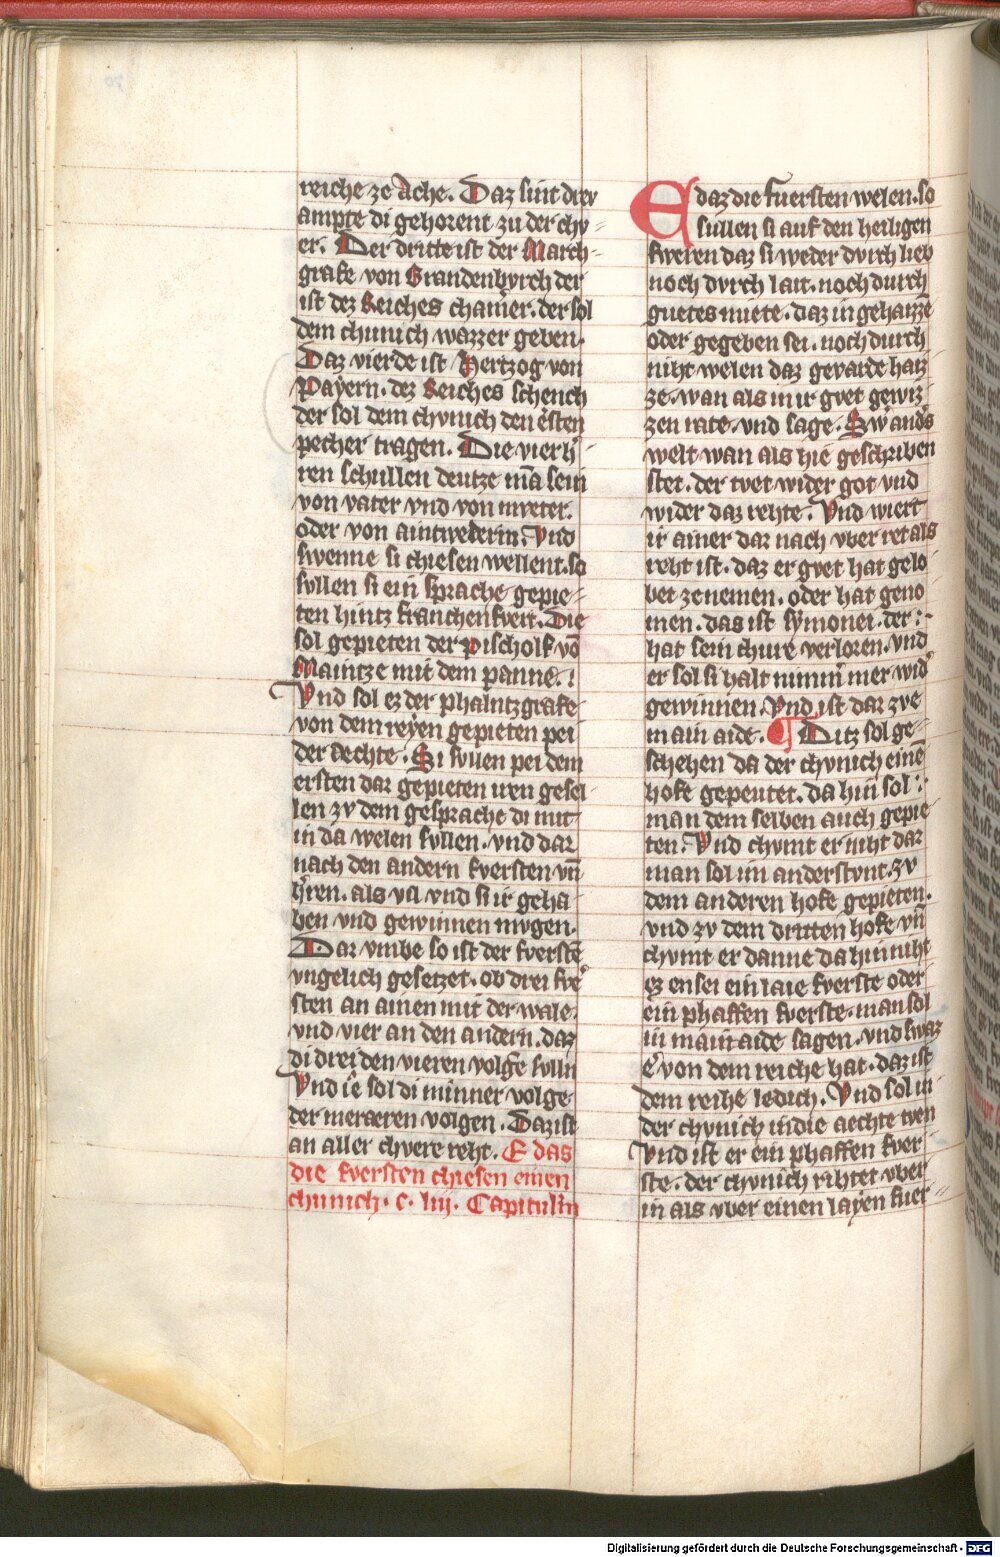 reiche ze Ache. Daz sint drev
ampte di gehorent zu der chv
er. Der dritte ist der March-
grafe von Brandenbvrch der
ist dez Reiches chamer. der sol
dem chunich wazzer geben.
Daz vierde ist Hertzog von
Payern. dez Reiches schench
der sol dem chvnich den ersten
pecher tragen. Die vier h
ren schullen deutze mā sein
von vater vnd von mveter.
oder von aintwederm. Vnd
swenne si chiesen wellent. so
svllen si ein sprache gepie-
ten hintz franchenfvrt. Die
sol gepieten der pischolf vō
Maintze mit dem panne.
Vnd sol ez der phalntzgrafe
von dem reyen gepieten pei
der aechte. Si svllen pei dem
ersten dar gepieten iren gesel
len zv dem gesprache di mit
in da welen svllen. vnd dar
nach den andern fversten vn̄
hren. als vil vnd si ir geha
ben vnd gewinnen mvgen.
Dar vmbe so ist der fverstē
vngelich gesetzet. ob drei fve
sten an ainen mit der wale.
vnd vier an den andern. daz
di drei den vieren volge svlln
Vnd ie sol di minner volge
der meraeren volgen. Daz ist
an aller chvere reht. E das
die fversten chiesen einen
chunich. c. liij. Capitulm
E daz die fuersten welen. so
sullen si auf den heiligen
sweren daz si weder dvrch lieb
noch dvrch lait. noch durch
guetes miete. daz in gehaizzē
oder gegeben sei. noch durch
niht welen daz gevaide haiz
ze. wan als in ir gvet gewiz
zen rate. vnd sage. Sw anders
welt wan als hie geschriben
stet. der tvet wider got vnd
wider daz rehte. Vnd wiert
ir ainer dar nach vber ret als
reht ist. daz er gvet hat gelo
bet ze nemen. oder hat geno
men. das ist symonei. der
hat sein chure verloren. vnd
er sol si halt nimm mer wider
gewinnen. Vnd ist dar zve
main aide. ¶ Ditz sol ge-
schehen da der chvnich einē
hofe gepeutet. da hin sol
man dem selben auch gepie
ten. Vnd chvmt er niht dar
man sol im anderstvnt. zv
dem anderen hofe gepieten.
vnd zv dem dritten hofe vn̄
chvmt er danne da hin niht
ez en sei ein laie fverste oder
ein phaffen fverste. man sol
in main aide sagen. vnd swaz
er von dem reiche hat. daz ist
dem reihe ledich. Vnd sol in
der chvnich in die aechte tven
Vnd ist er ein phaffen fver
ste. der chvnich rihtet vber
in als vber einen layen fuer
Digitalisierung gefördert durch die Deutsche Forschungsgemeinschaft - DFG